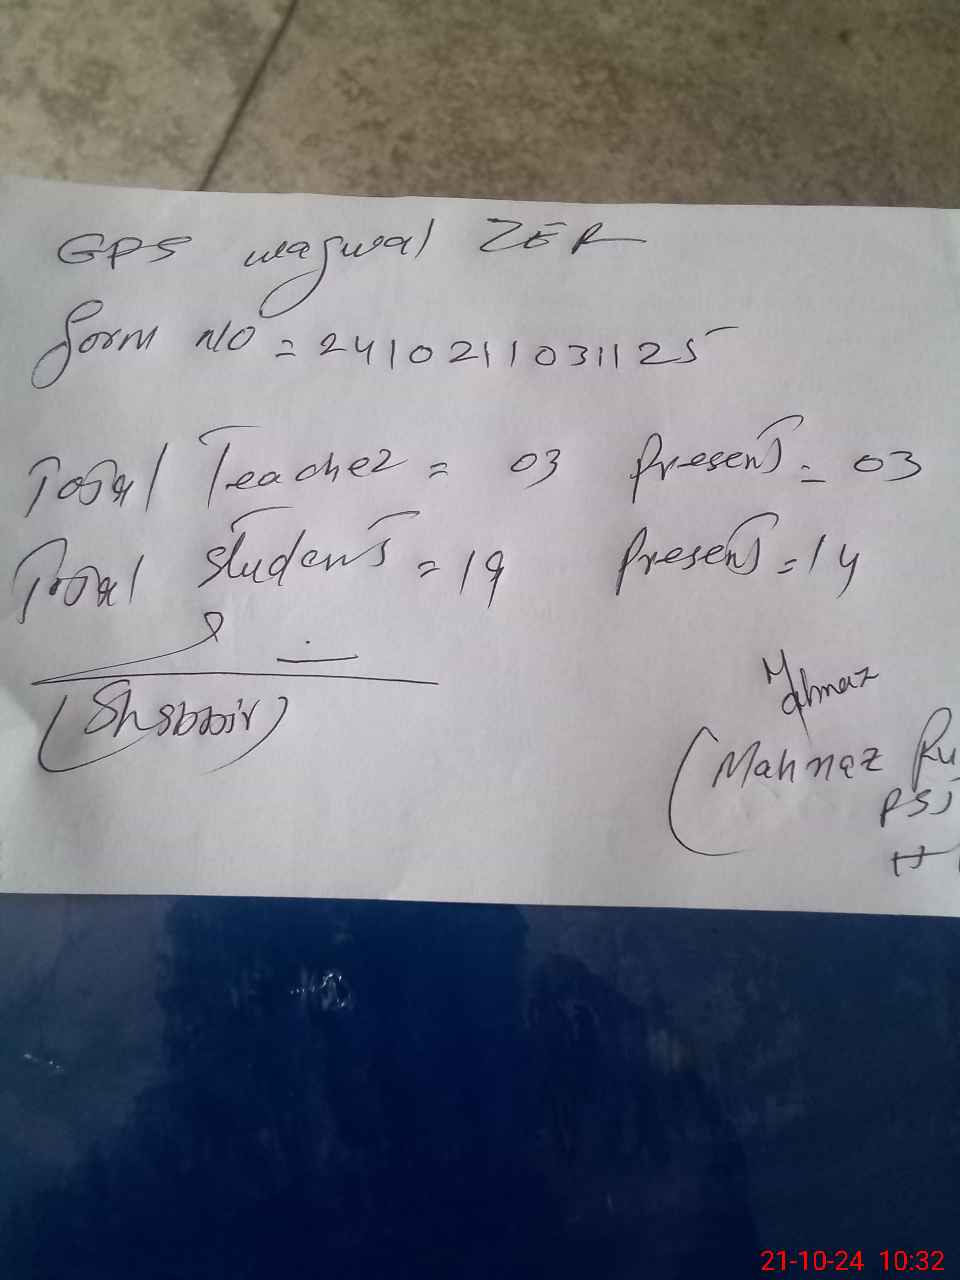 GPS wagwal ZER
form no = 2410211031125
Total Teacher = 03 Present = 03
Total students = 19 Present = 14
(Shabbir)
Mahnaz
(Mahnaz Ru
PST
H
21-10-24 10:32